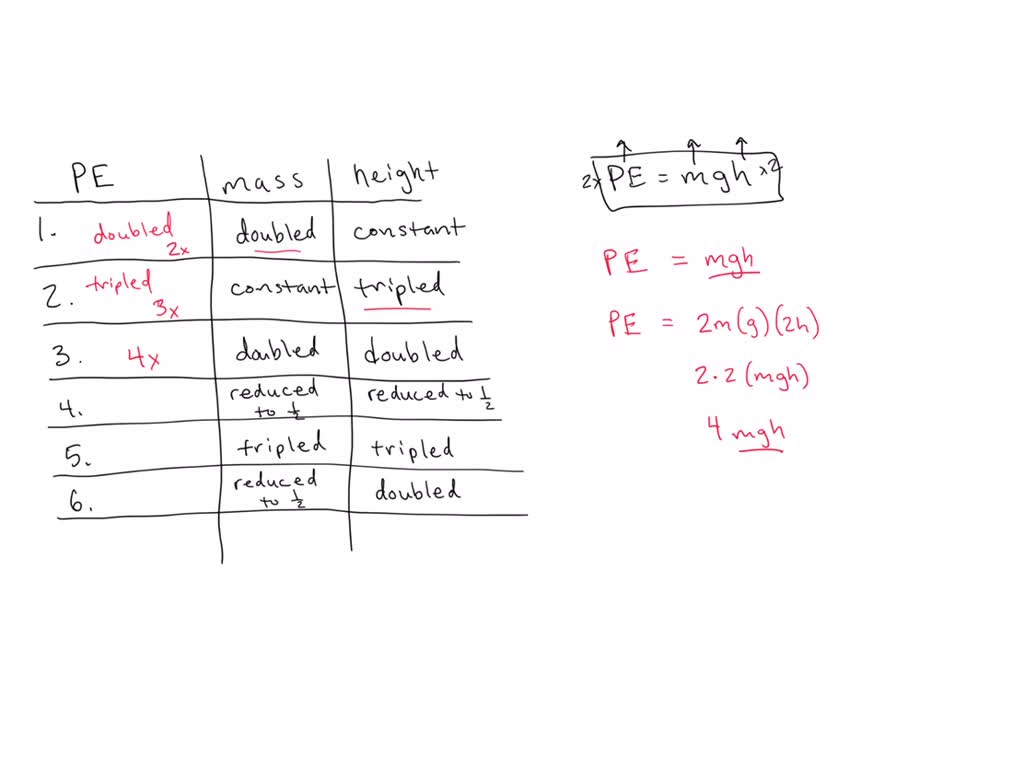 PE mass height
1. doubled 2x doubled constant
2. tripled 3x constant tripled
3. 4x doubled doubled
4. reduced to 1/2 reduced to 1/2
5. tripled tripled
6. reduced to 1/2 doubled
2x PE = mgh x2
PE = mgh
PE = 2m(g)(2h)
2·2(mgh)
4 mgh